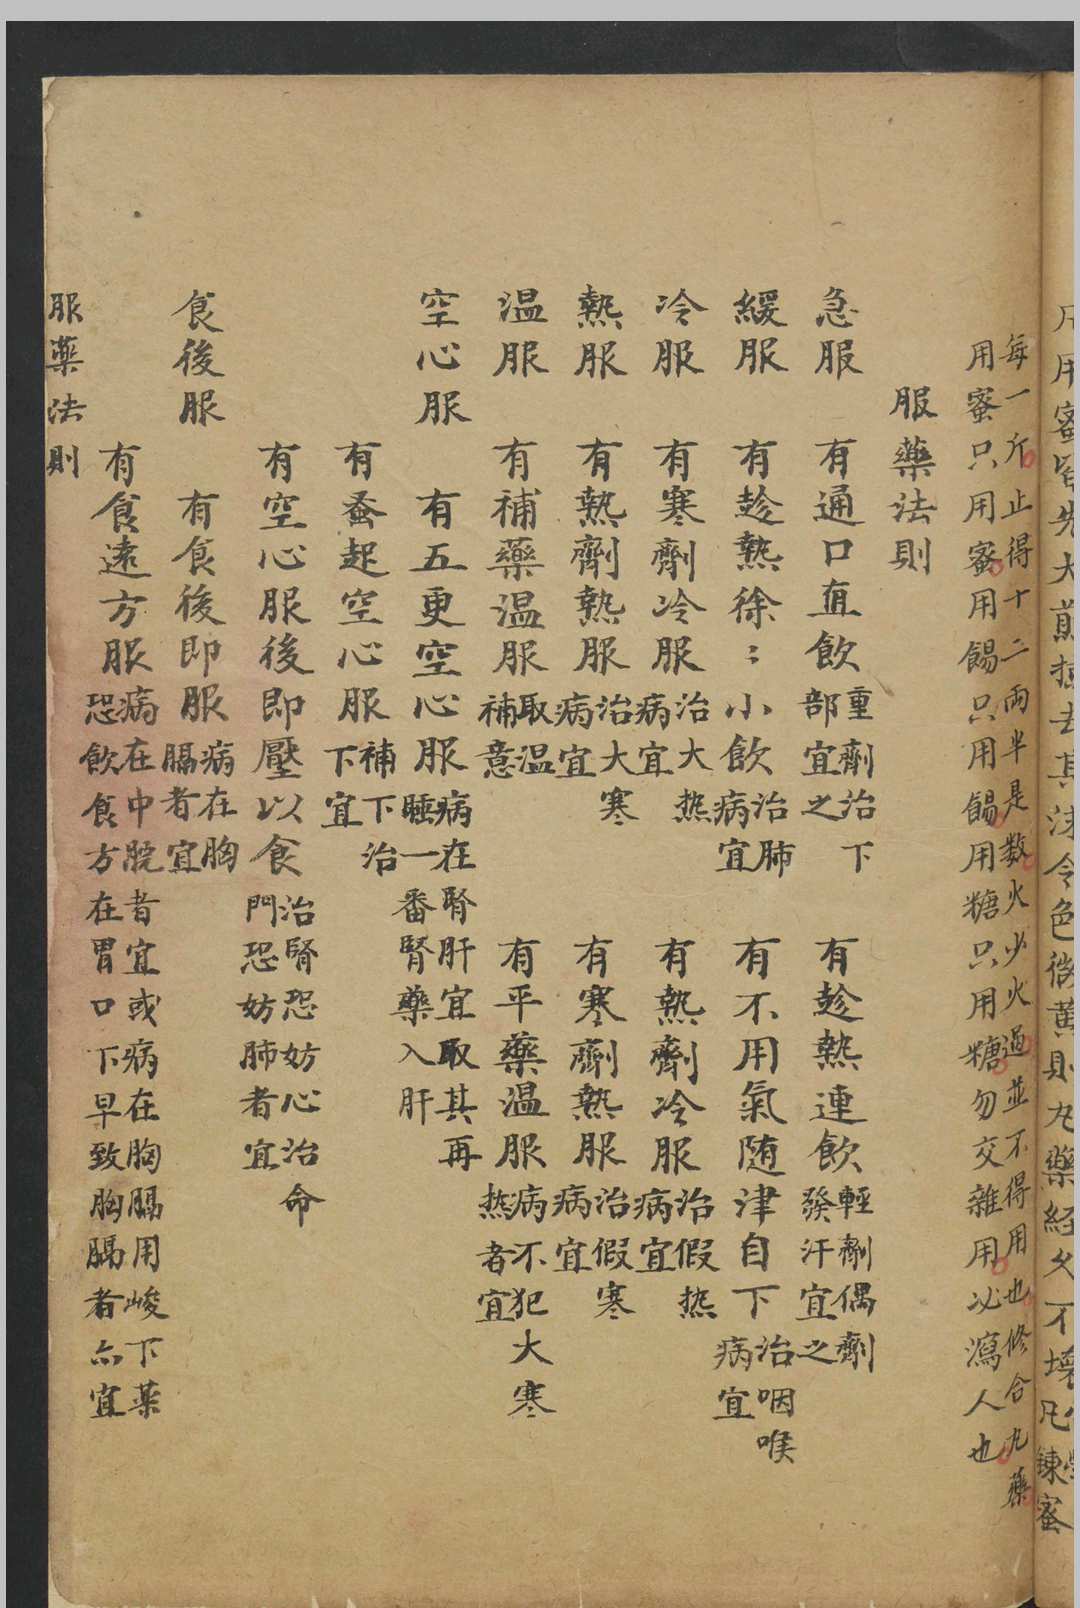 用蜜皆先火煎掠去其沫令色微黃則丸藥経久不壞凡鍊蜜
每一斤止得十二兩半是数火少火過並不得用也修合丸藥
用蜜只用蜜用餳只用餳用糖只用糖勿交雜用必瀉人也
服藥法則
急服 有通口直飲 重劑治下部宜之 有趁熱連飲 輕劑偶劑發汗宜之
緩服 有趁熱徐〻小飲 治肺病宜 有不用氣随津自下 治咽喉病宜
冷服 有寒劑冷服 治大热病宜 有熱劑冷服 治假热病宜
熱服 有熱劑熱服 治大寒病宜 有寒劑熱服 治假寒病宜
温服 有補藥温服 取温補意 有平藥温服 病不犯大寒热者宜
空心服 有五更空心服 病在腎肝宜取其再睡一番腎藥入肝
有蚤起空心服 補下治下宜
有空心服後即壓以食 治腎恐妨心治命門恐妨肺者宜
食後服 有食後即服 病在胸膈者宜
有食遠方服 病在中脘者宜或病在胸膈用峻下藥恐飲食方在胃口下早致胸膈者亦宜
服藥法則